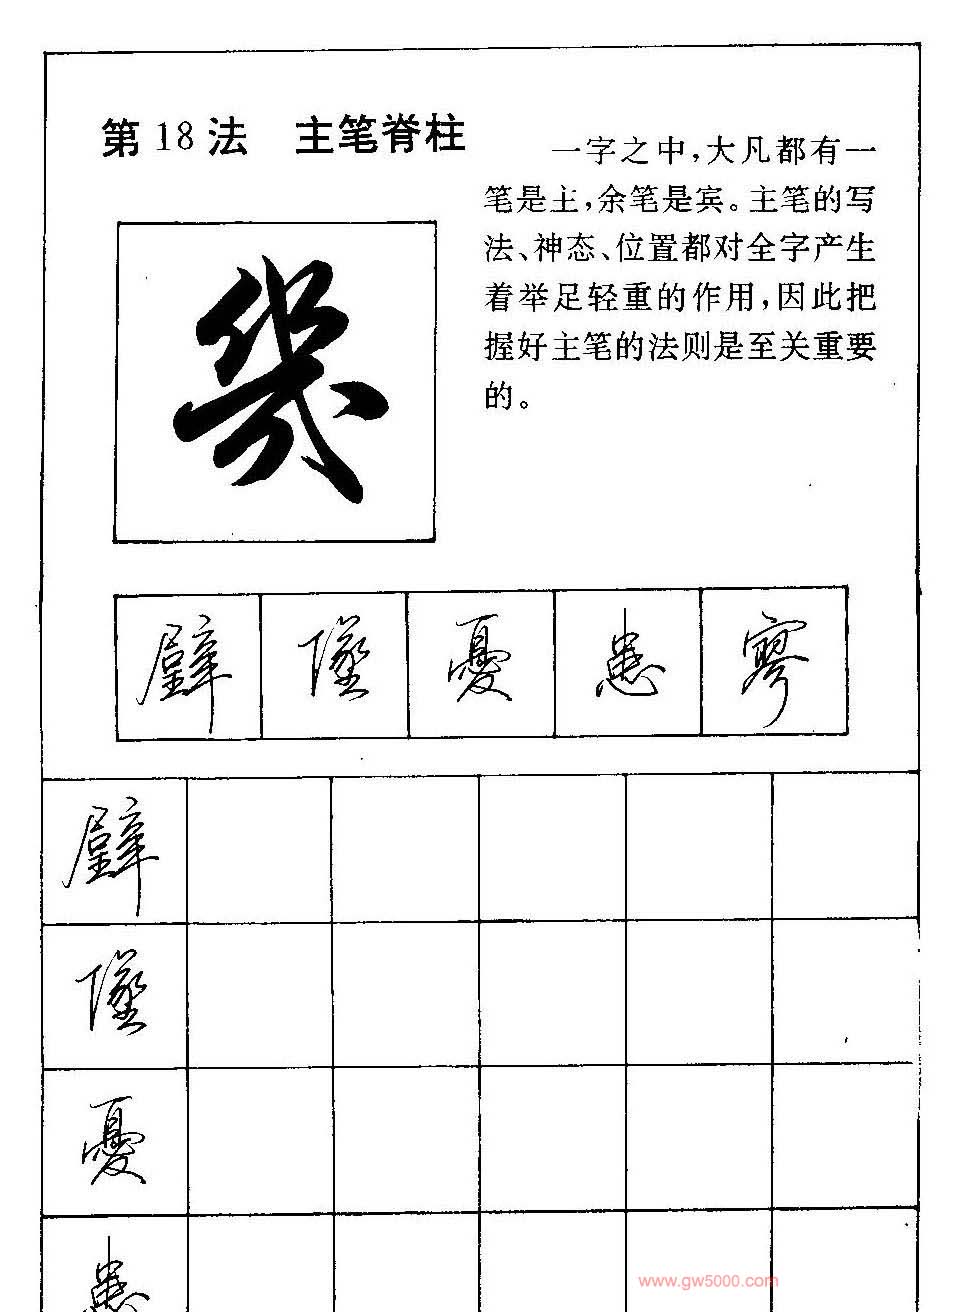 第18法 主笔脊柱
一字之中,大凡都有一
笔是主,余笔是宾。主笔的写
法、神态、位置都对全字产生
着举足轻重的作用,因此把
握好主笔的法则是至关重要
的。
幾
璧 墜 憂 患 寥
璧
墜
憂
患
www.gw5000.com